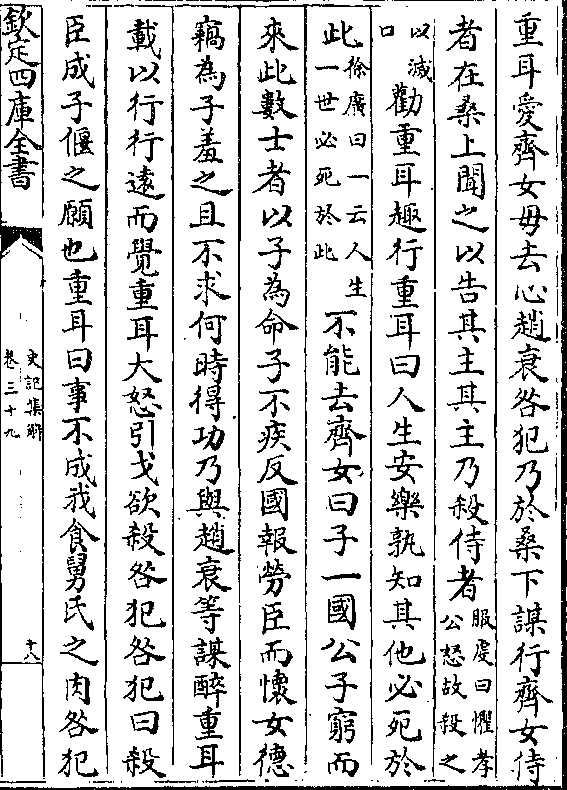 重耳愛齊女毋去心趙衰咎犯乃於桑下謀行齊女侍
者在桑上聞之以告其主其主乃殺侍者服虔曰懼孝公怒故殺之
以滅口勸重耳趣行重耳曰人生安樂孰知其他必死於
此徐廣曰一云人生一世必死於此不能去齊女曰子一國公子窮而
來此數士者以子為命子不疾反國報勞臣而懷女德
竊為子羞之且不求何時得功乃與趙衰等謀醉重耳
載以行行遠而覺重耳大怒引戈欲殺咎犯咎犯曰殺
臣成子偃之願也重耳曰事不成我食舅氏之肉咎犯
欽定四庫全書
史記集解
卷三十九
十八